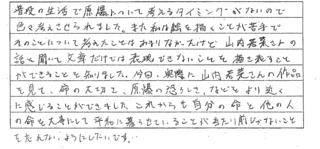 普段の生活で原爆について考えるタイミングがないので
色々考えさせられました。また私は絵を描くことが苦手で
そのことについて考えたことはあまりなかったけど、山内若菜さんの
話を聞いて文章だけでは表現できないことを描き表すこと
ができることを知りました。今回、実際に山内若菜さんの作品
を見て、命の大切さ、原爆の恐ろしさ、などをより近く
に感じることができました。これからも自分の命と他の人
の命を大事にして平和に暮らせていることがあたり前じゃないこと
をわすれないようにしたいです。